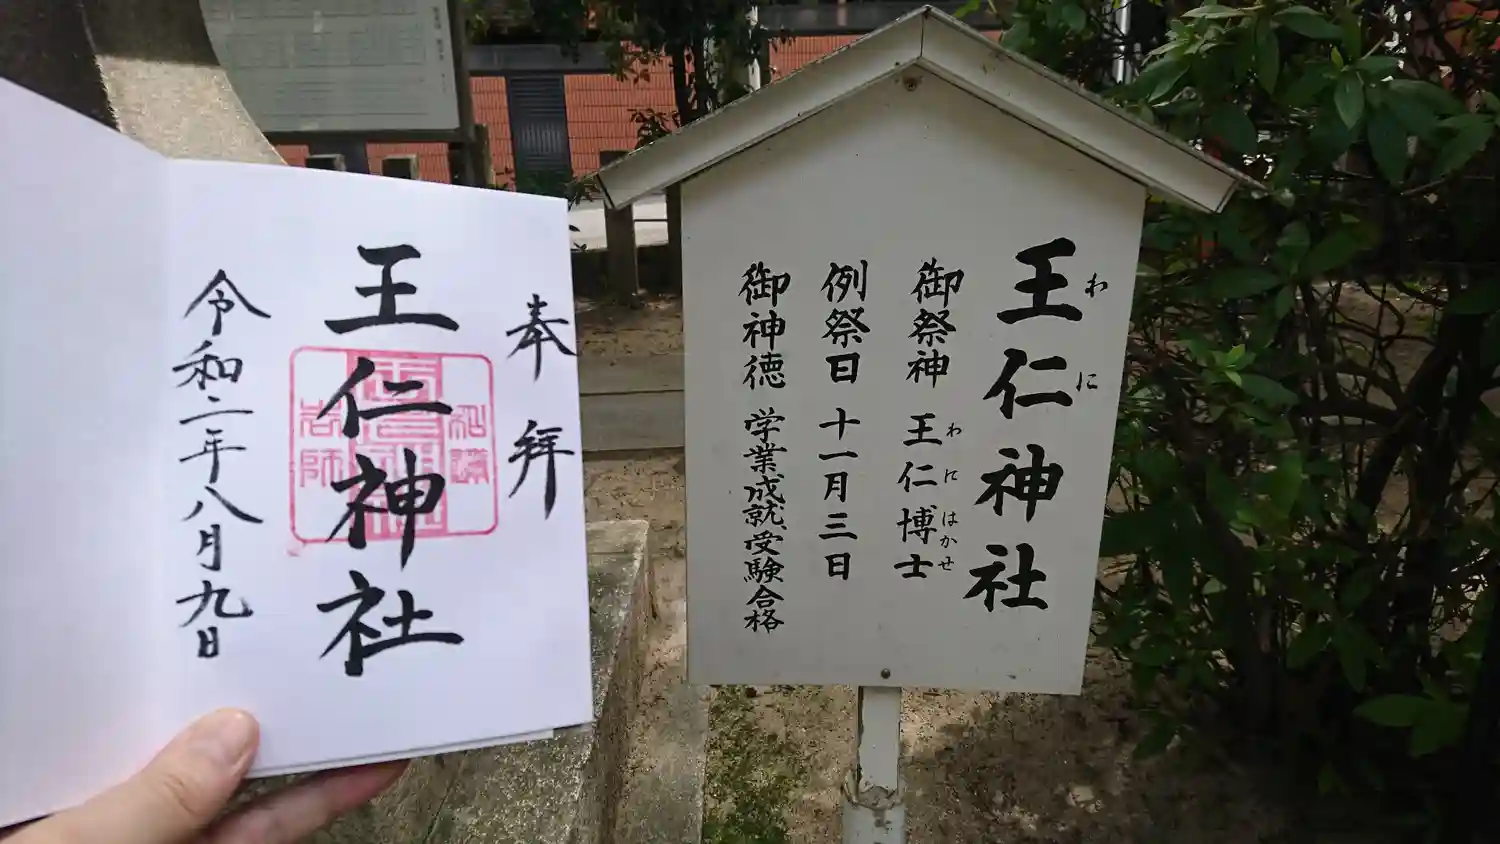 奉拝
王仁神社
令和二年八月九日
王仁神社
わに
御祭神 王仁博士
わに はかせ
例祭日 十一月三日
御神徳 学業成就、受験合格